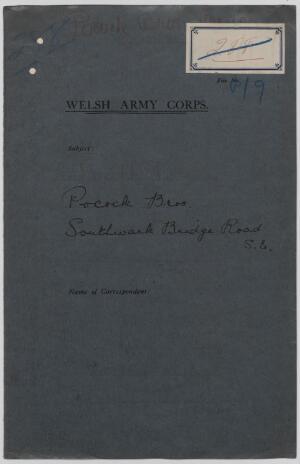 Pocock
File No. 819
WELSH ARMY CORPS.
Subject:
Pocock Bros.
Southwark Bridge Road
S.E.
Name of Correspondent: